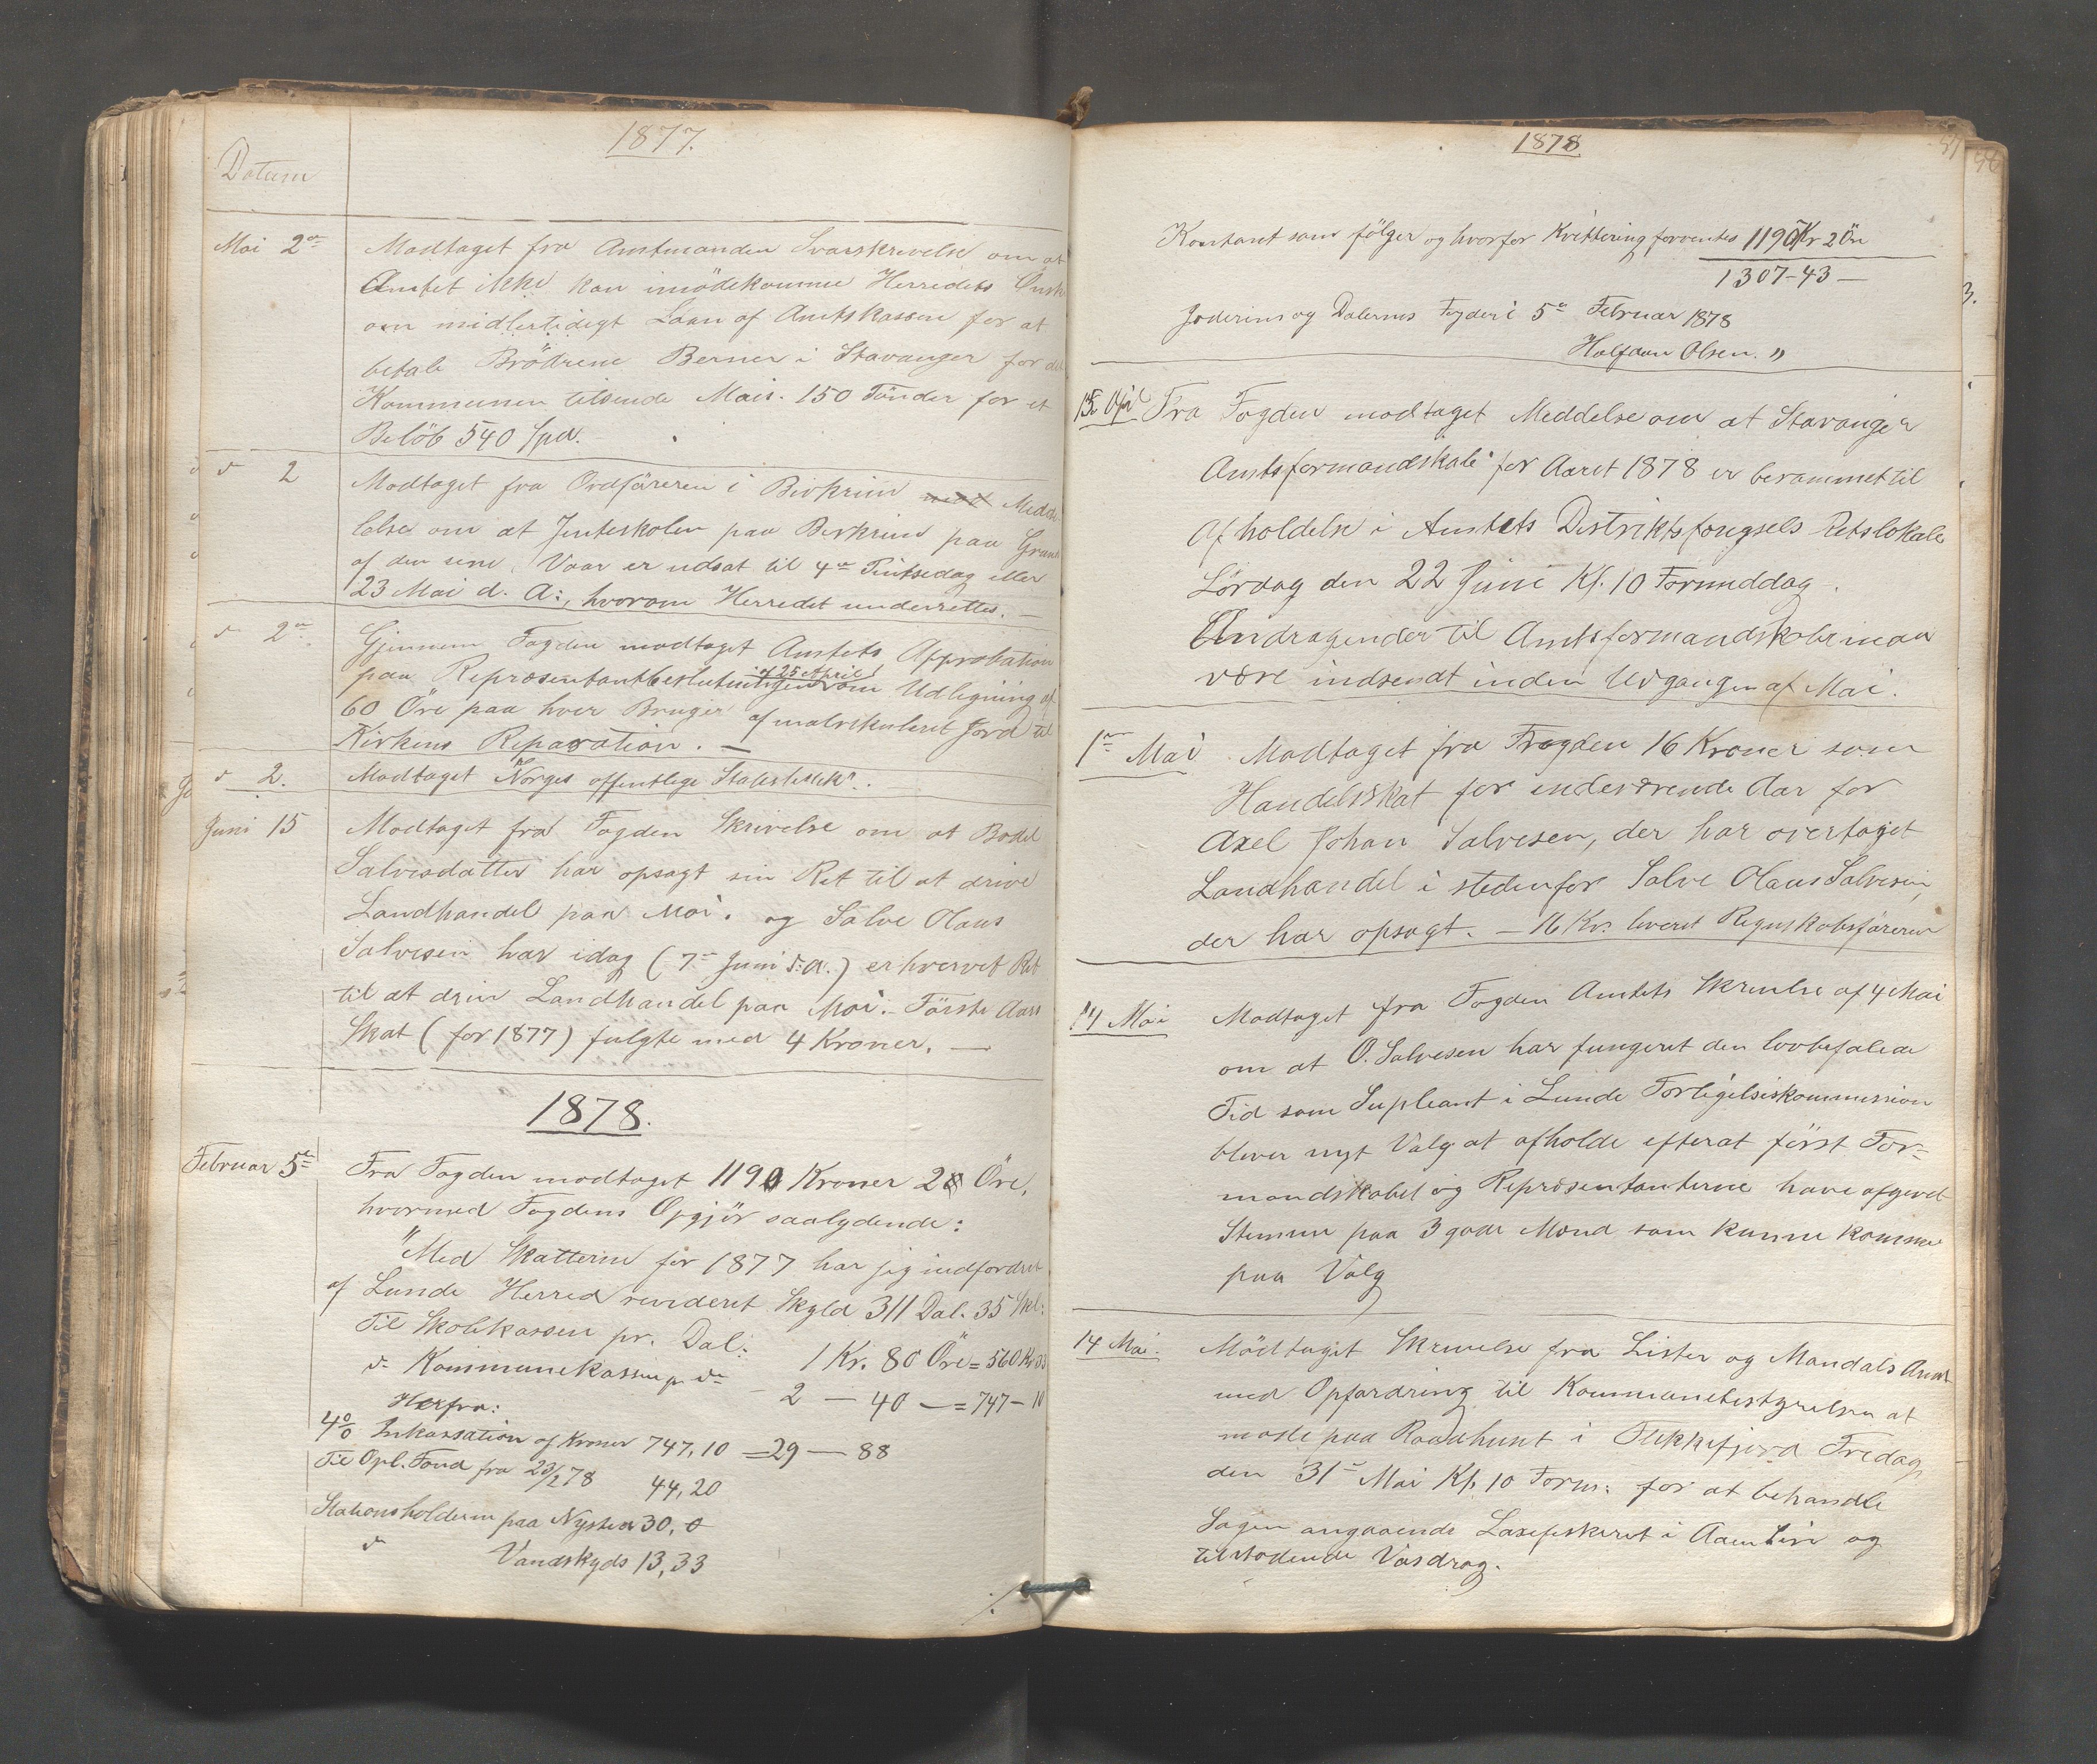 1877.
Datum
Mai 2den Modtaget fra Amtmanden Svarskrivelse om at
Amtet ikke kan imödekomme Herredets Önske
om midlertidigt Laan af Amtskassen for at
betale Brödrene Berner i Stavanger for det
Kommunen tilsendte Mais. 150 Tönder for et
Belöb 540 Spd.
d 2 Modtaget fra Ordföreren i Birkrim Medde
lelse om at Jenteskolen paa Birkrim paa Grund
af den sene Vaar er udsat til 4de Pintsedag eller
23 Mai d. A:, hvorom Herredet underrettes. —
d 2den Gjennem Fogden modtaget Amtets Approbation
paa Repræsentantbeslutningen af 25 April om Udligning af
60 Öre paa hver Bruger af matrikuleret Jord til
Kirkens Reparation. —
d 2. Modtaget "Norges offentlige Statestistik".
Juni 15 Modtaget fra Fogden Skrivelse om at Bodil
Salvesdatter har opsagt sin Ret til at drive
Landhandel paa Moi. og Salve Olaus
Salvesen har idag (7de Juni d. A.) erhvervet Ret
til at drive Landhandel paa Moi. Förste Aars
Skat (for 1877) fulgte med 4 Kroner. —
1878.
Februar 5te Fra Fogden modtaget 1190 Kroner 2 Öre,
hvormed Fogdens Opgjör saalydende:
"Med Skatterne for 1877 har jeg indfordret
af Lunde Herred revideret Skyld 311 Dal. 35 Skl:
Til Skolekassen pr. Dal: 1 Kr. 80 Öre = 560 Kr 33
d Kommunekassen pr d — 2 — 40 — = 747 — 10
Herfra:
4% Inkassation af Kroner 747,10 = 29 — 88
Til Opl. Fond fra 23/2 78 44,20
Stationsholderen paa Nysted 30, 0
d Vandskyds 13,33
1878
Kontant som fölger og hvorfor Kvittering forventes 1190 Kr 2 Öre
1307 - 43 —
Jæderens og Dalernes Fogderi 5te Februar 1878
Halfdan Olsen. "
15 April Fra Fogden modtaget Meddelse om at Stavanger
Amtsformandskab for Aaret 1878 er berammet til
Afholdelse i Amtets Distriktsfængsels Retslokale
Lördag den 22 Juni Kl. 10 Formiddag.
Andragender til Amtsformandskabet maa
være indsendt inden Udgangen af Mai.
1ste Mai Modtaget fra Fogden 16 Kroner som
Handelsskat for indeværende Aar for
Axel Johan Salvesen, der har overtaget
Landhandel i stedenfor Salve Olaus Salvesen,
der har opsagt. — 16 Kr. leveret Regnskabsföreren
14 Mai Modtaget fra Fogden Amtets Skrivelse af 4 Mai
om at O. Salvesen har fungeret den lovbefalede
Tid som Supleant i Lunde Forligelseskommission
bliver nyt Valg at afholde efterat först For-
mandskabet og Repræsentanterne have afgivet
Stemme paa 3 gode Mænd som kunne komme
paa Valg
14 Mai. Modtaget Skrivelse fra Lister og Mandals Amt
med Opfordring til Kommunebestyrelsen at
möde paa Raadhuset i Flekkefjord Fredag
den 31te Mai Kl. 10 Form: for at behandle
Sagen angaaende Laxefiskeriet i Aaen Sire og
tilstödende Vasdrag.